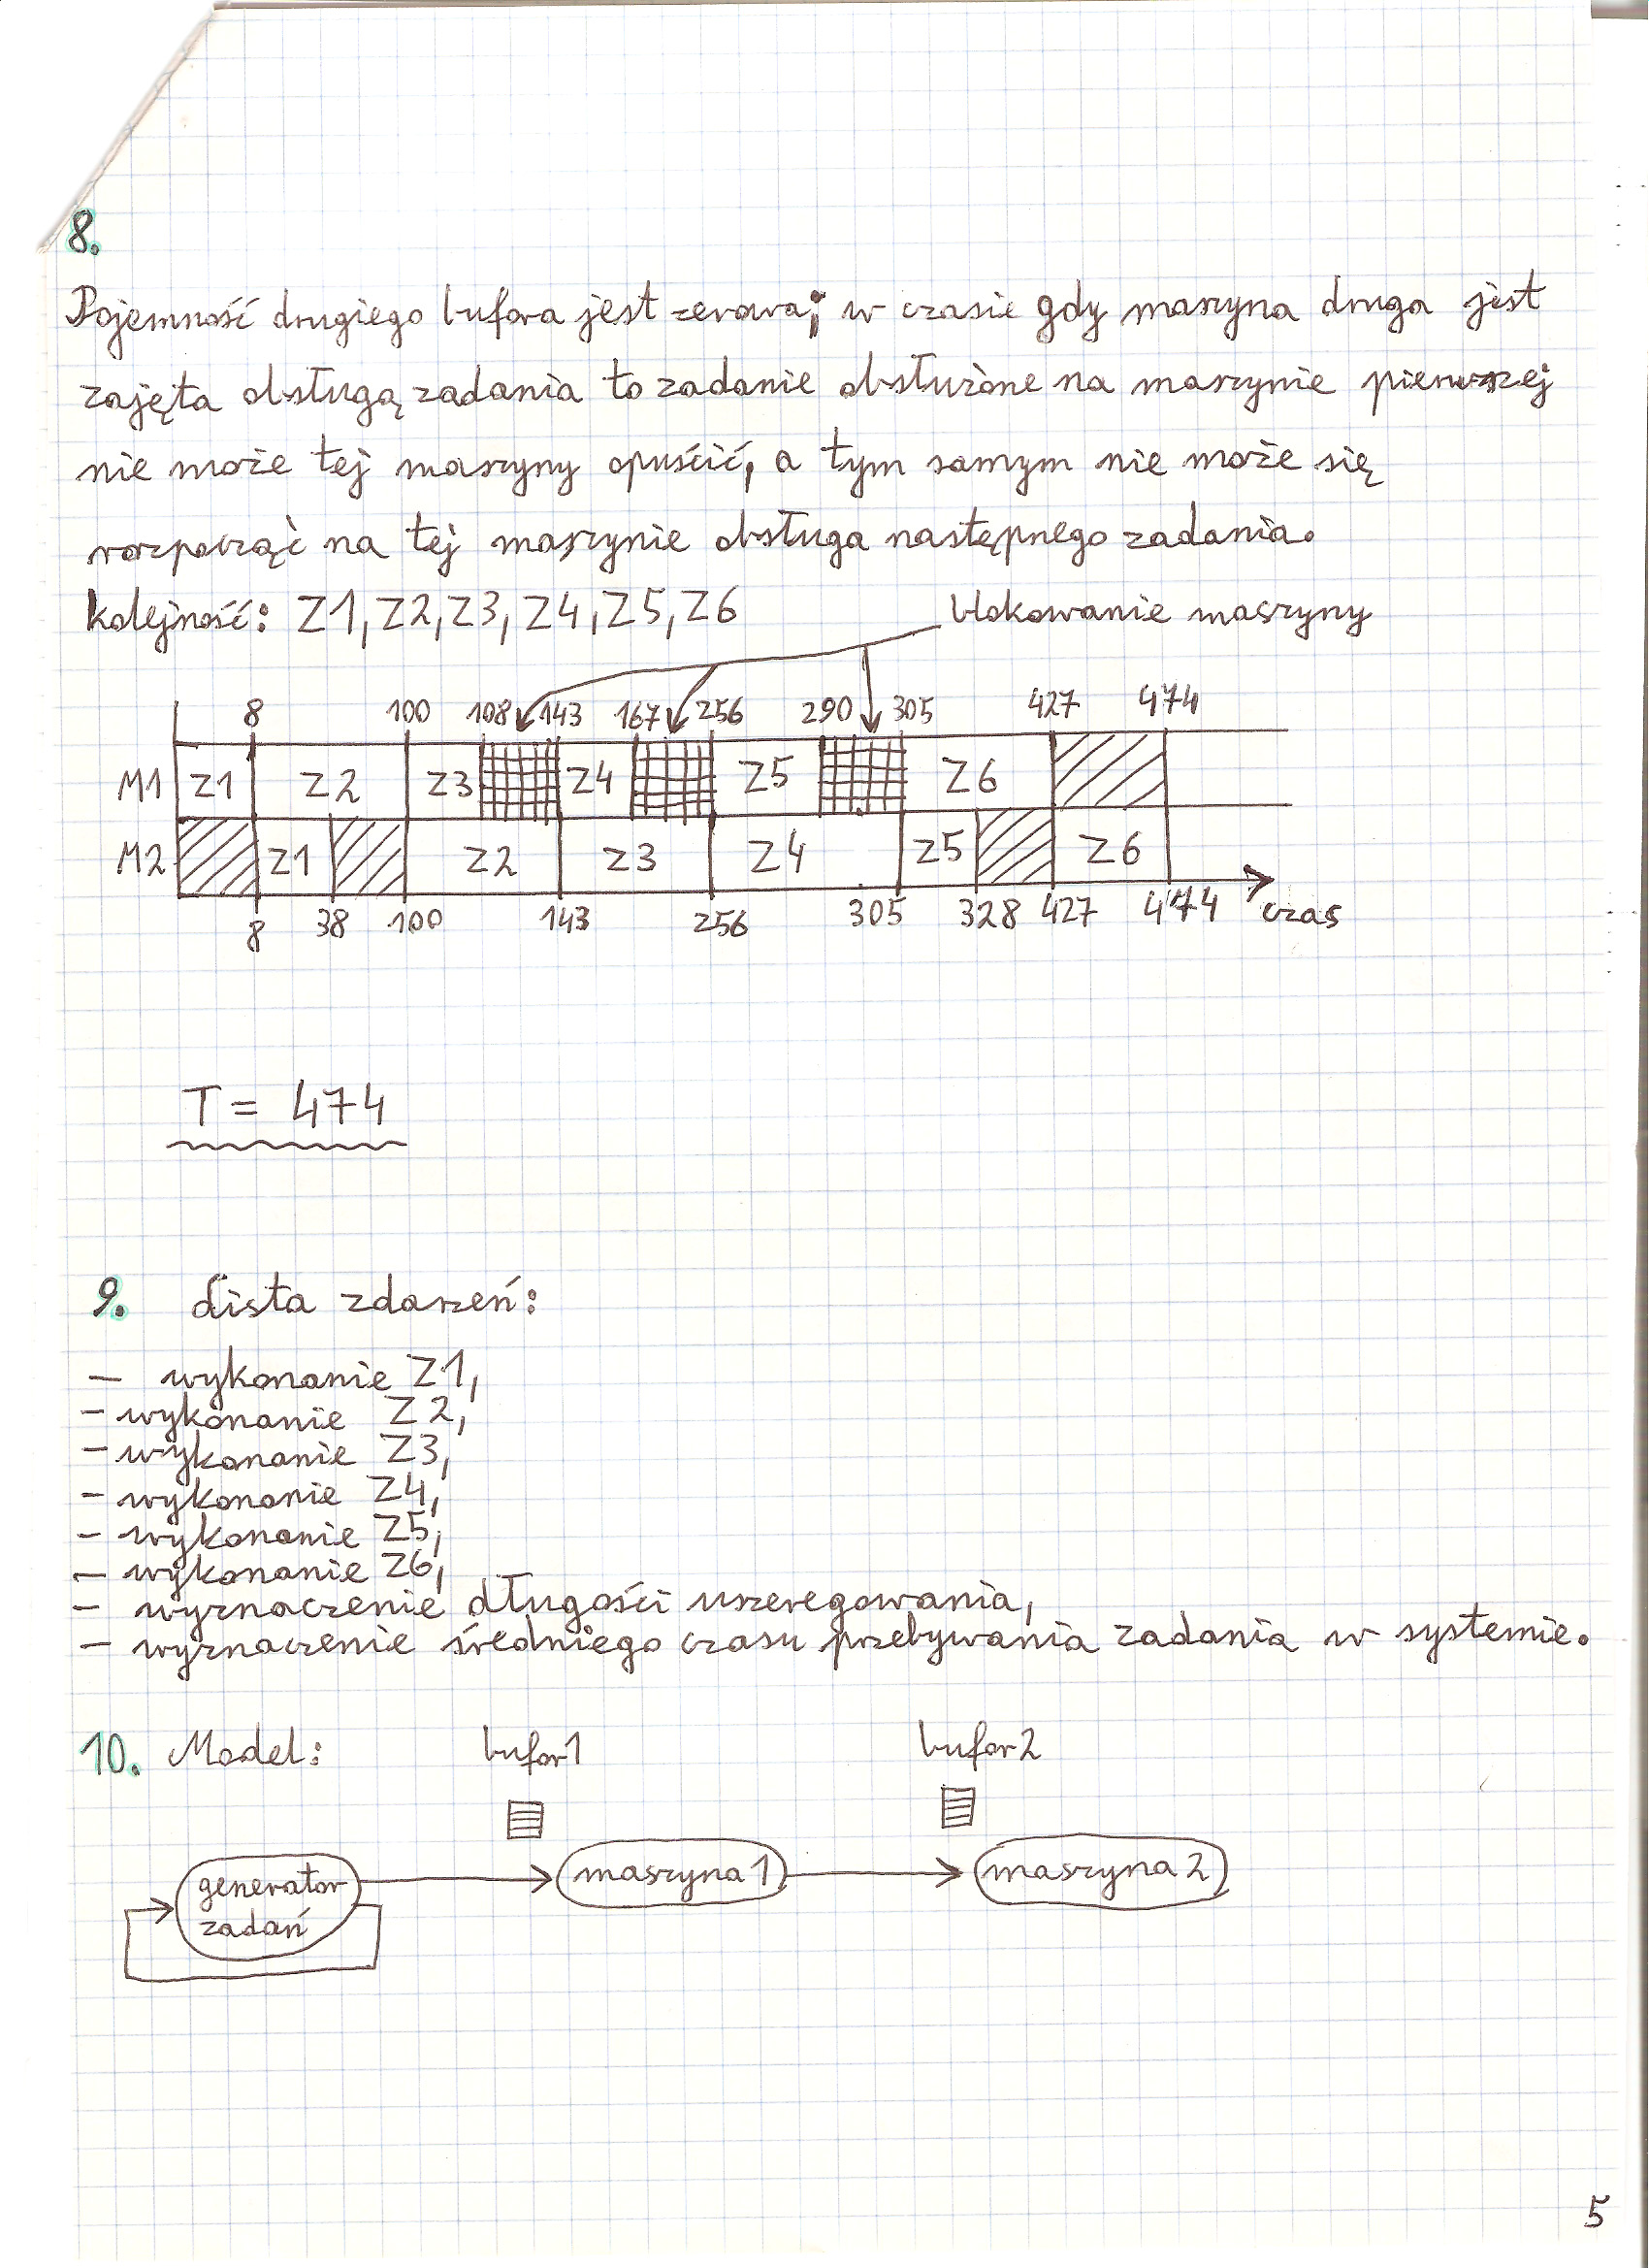 8.
Pojemność drugiego bufora jest zerowa; w czasie gdy maszyna druga jest
zajęta obsługą zadania to zadanie obsłużone na maszynie pierwszej
nie może tej maszyny opuścić, a tym samym nie może się
rozpocząć na tej maszynie obsługa następnego zadania.
kolejność: Z1, Z2, Z3, Z4, Z5, Z6
blokowanie maszyny
8 100 108 143 167 256 290 305 427 474
M1 Z1 Z2 Z3 Z4 Z5 Z6
M2 Z1 Z2 Z3 Z4 Z5 Z6
8 38 100 143 256 305 328 427 474 czas
T = 474
9. Lista zdarzeń:
– wykonanie Z1,
– wykonanie Z2,
– wykonanie Z3,
– wykonanie Z4,
– wykonanie Z5,
– wykonanie Z6,
– wyznaczenie długości uszeregowania,
– wyznaczenie średniego czasu przebywania zadania w systemie.
10. Model: bufor1 bufor2
generator zadań maszyna 1 maszyna 2
5